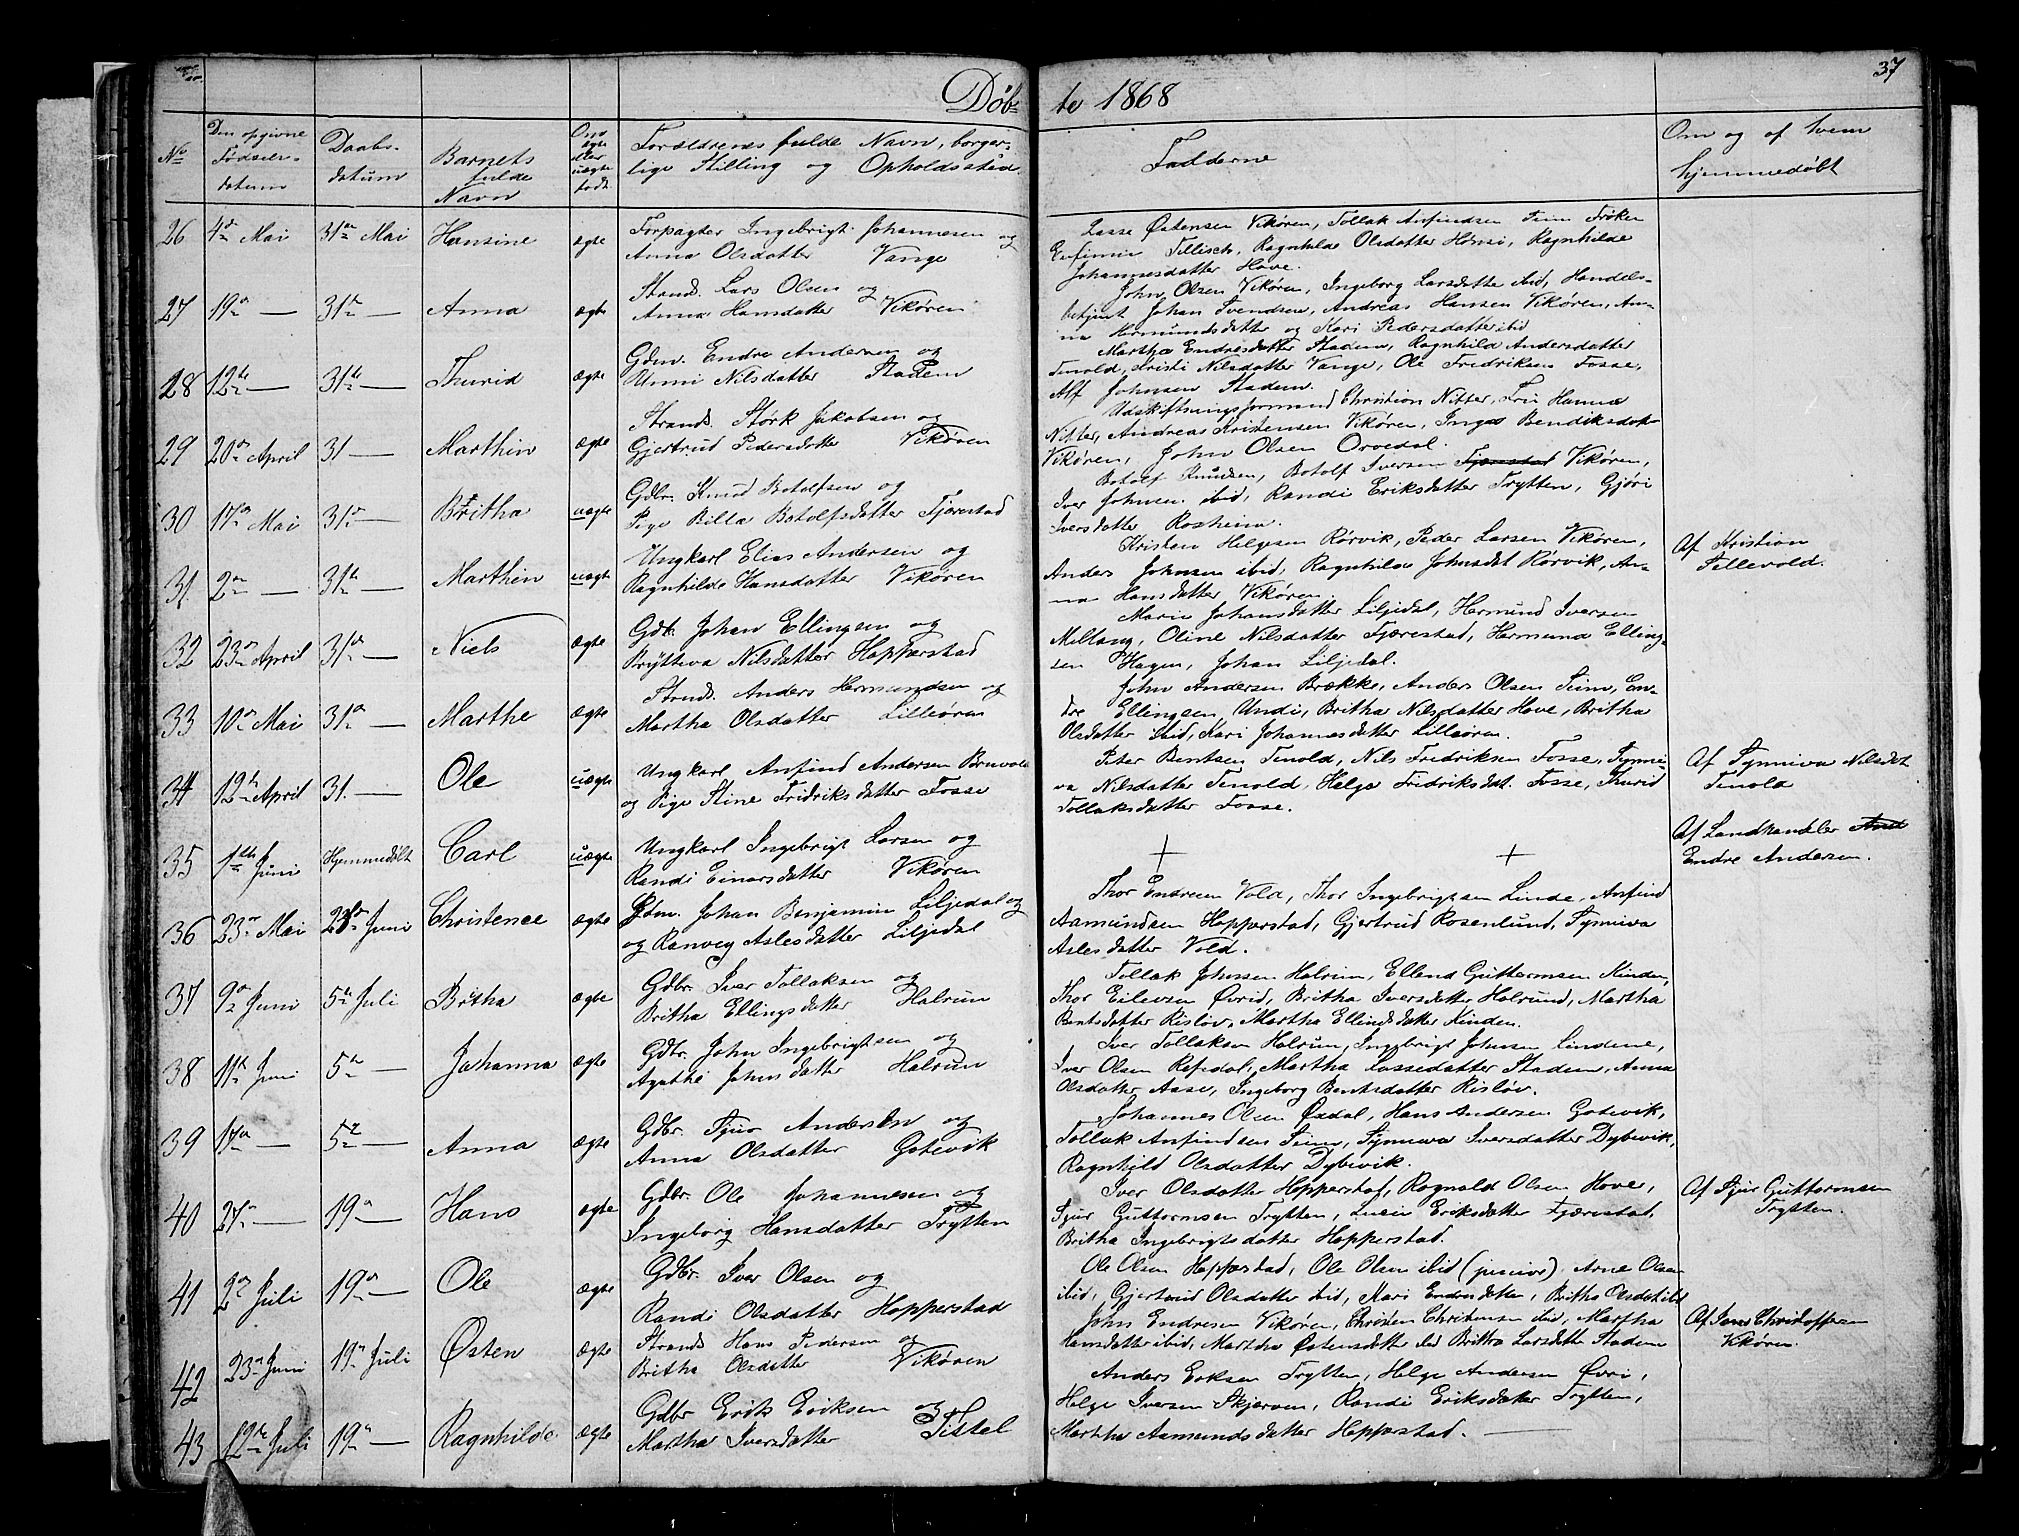 37
Døb- te 1868
No
Den opgivne Fødselsdatum
Daabsdatum
Barnets fulde Navn
Om ægte eller uægte født
Forældrenes fulde Navn, borgerlige Stilling og Opholdssted
Fadderne
Om og af hvem hjemmedøbt
26 4de Mai 31te Mai Hansine ægte Forpagter Ingebrigt Johannesen og
Anna Olsdatter Vange
Lasse Østensen Vikøren, Tollak Anfindsen Seim Frøken
Eufimia Tillisch, Ragnhilde Olsdatter Hønsi, Ragnhilde
Johannesdatter Hove.
27 19de — 31te — Anna ægte Strands. Lars Olsen og
Anna Hansdatter Vikøren
John Olsen Vikøren, Ingeborg Larsdatter ibid, Handels-
betjent Johan Svendsen, Andreas Hansen Vikøren, An-
na Hermundsdatter og Kari Pedersdatter ibid
28 12te — 31te — Thurid ægte Gdm. Endre Andersen og
Unni Nilsdatter Stadem
Martha Endresdatter Stadem, Ragnhild Andersdatter
Tenold, Kristi Nilsdatter Vange, Ole Fredriksen Fosse,
Alf Johnsen Stadem.
29 20de April 31 — Marthin ægte Strands. Størk Jakobsen og
Gjertrud Pedersdatter Vikøren
Udskiftningsformand Christian Nitter, Fru Hanna
Nitter, Andreas Kristensen Vikøren, Inga Bendiksdat-
Vikøren, John Olsen Orvedal.
30 17de Mai 31te — Britha uægte Gdbr. Knud Botolfsen og
Pige Billa Botolfsdatter Fjærestad
Botolf Knudsen, Botolf Iversen Vikøren,
Iver Johnsen ibid, Randi Eriksdatter Trytten, Gjøri
Iversdatter Rosheim.
31 2den — 31te — Marthin uægte Ungkarl Elias Andersen og
Ragnhilde Hansdatter Vikøren
Kristen Helgesen Rørvik, Peder Larsen Vikøren,
Anders Johnsen ibid, Ragnhilde Johnsdat Rørvik, An-
na Hansdatter Vikøren.
Af Kristian
Tillevold.
32 23de April 31te — Niels ægte Gdb. Johan Ellingsen og
Brytteva Nilsdatter Hopperstad
Marie Johansdatter Liljedal, Hermund Iversen
Mellang, Oline Nilsdatter Fjærestad, Hermund Elling-
sen Hagen, Johan Liljedal.
33 10de Mai 31te — Marthe ægte Strands. Anders Hermundsen og
Martha Olsdatter Lilleøren
John Andersen Brække, Anders Olsen Seim, En-
dre Ellingsen Undi, Britha Nilsdatter Hove, Britha
Olsdatter ibid, Kari Johannesdatter Lilleøren.
34 12te April 31. — Ole uægte Ungkarl Anfind Andersen
og Pige Stine Fridriksdatter Fosse
Peter Bentsen Tenold, Nils Fredriksen Fosse, Synni-
va Nilsdatter Tenold, Helga Fridriksdat. Fosse, Thurid
Tollaksdatter Fosse.
Af Synniva Nilsdat
Tenold
35 1ste Juni Hjemmedøbt Carl uægte Ungkarl Ingebrigt Larsen og
Randi Einarsdatter Vikøren
+ +
Af Landhandler And
Endre Andersen.
36 23de Mai Juni Christence ægte Gdm. Johan Benjamin Liljedal og
og Ranvey Aslesdatter Liljedal
Thor Endresen Vold, Thor Ingebrigtsen Linde, Anfind
Aamundsen Hopperstad, Gjertrud Rosenlund, Synniva
Aslesdatter Vold.
37 9de Juni 5te Juli Britha ægte Gdbr. Iver Tollaksen og
Britha Ellingsdatter Halrun
Tollak Johnsen Halrun, Ellend Guttormsen Kinden,
Thor Eilevsen Øvrid, Britha Iversdatter Halrund, Martha
Bentsdatter Risløv, Martha Ellendsdatter Kinden.
38 11te Juni 5te — Johanna ægte Gdbr. John Ingebrigtsen og
Agathe Johnsdatter Halrun
Iver Tollaksen Halrun, Ingebrigt Johnsen Lindene,
Iver Olsen Refsdal, Martha Lassedatter Stadem, Anna
Olsdatter Aase, Ingeborg Bentsdatter Risløv.
39 17de — 5te — Anna ægte Gdbr. Sjur Andersen og
Anna Olsdatter Gotevik
Johannes Olsen Øxdal, Hans Andersen Gotevik,
Tollak Anfindsen Seim, Synneva Iversdatter Dybevik,
Ragnhild Olsdatter Dybevik.
40 27de — 19de — Hans ægte Gdbr. Ole Johannesen og
Ingeborg Hansdatter Trytten
Iver Olsdatter Hopperstad, Ragnald Olsen Hove,
Sjur Guttormsen Trytten, Lucie Eriksdatter Fjærestad,
Britha Ingebrigtsdatter Hopperstad.
Af Sjur Guttormsen
Trytten.
41 2den Juli 19de — Ole ægte Gdbr. Iver Olsen og
Randi Olsdatter Hopperstad
Ole Olsen Hopperstad, Ole Olsen ibid (junior), Arne Olsen
ibid, Gjertrud Olsdatter ibid, Kari Endresdatter, Britha Olsdat ibid
42 23de Juni 19de Juli Østen ægte Strands Hans Pedersen og
Britha Olsdatter Vikøren
John Endresen Vikøren, Christen Christensen ibid, Martha
Hansdatter ibid, Martha Østensdatter ibid Britha Larsdatter Stadem
Af Jens Christoffersen
Vikøren.
43 12te Juli 19de — Ragnhilde ægte Gdbr Erik Eriksen og
Martha Iversdatter Tistel
Anders Eriksen Trytten, Helge Andersen Øvri,
Helge Iversen Skjerven, Randi Eriksdatter Trytten,
Martha Aamundsdatter Hopperstad.